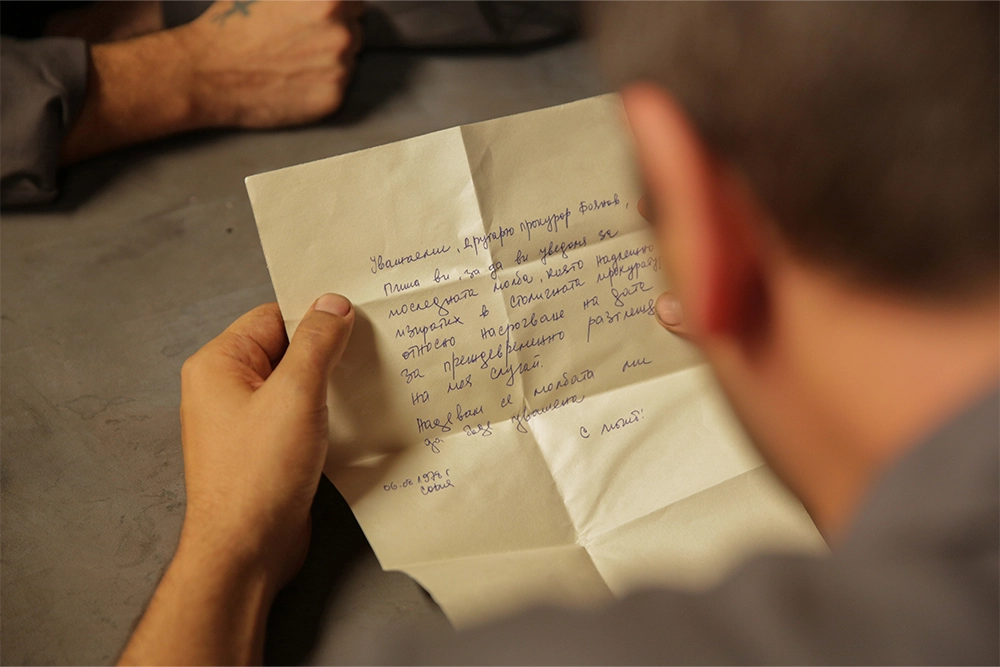 Уважаеми, другарю прокурор Боянов,
Пиша ви, за да ви уведомя за
последната молба, която надлежно
изпратих в столичната прокуратур
относно насрочване на дата
за преждевременно разглеж
на моя случай.
Надявам се молбата ми
да бъде уважена
С почит!
София